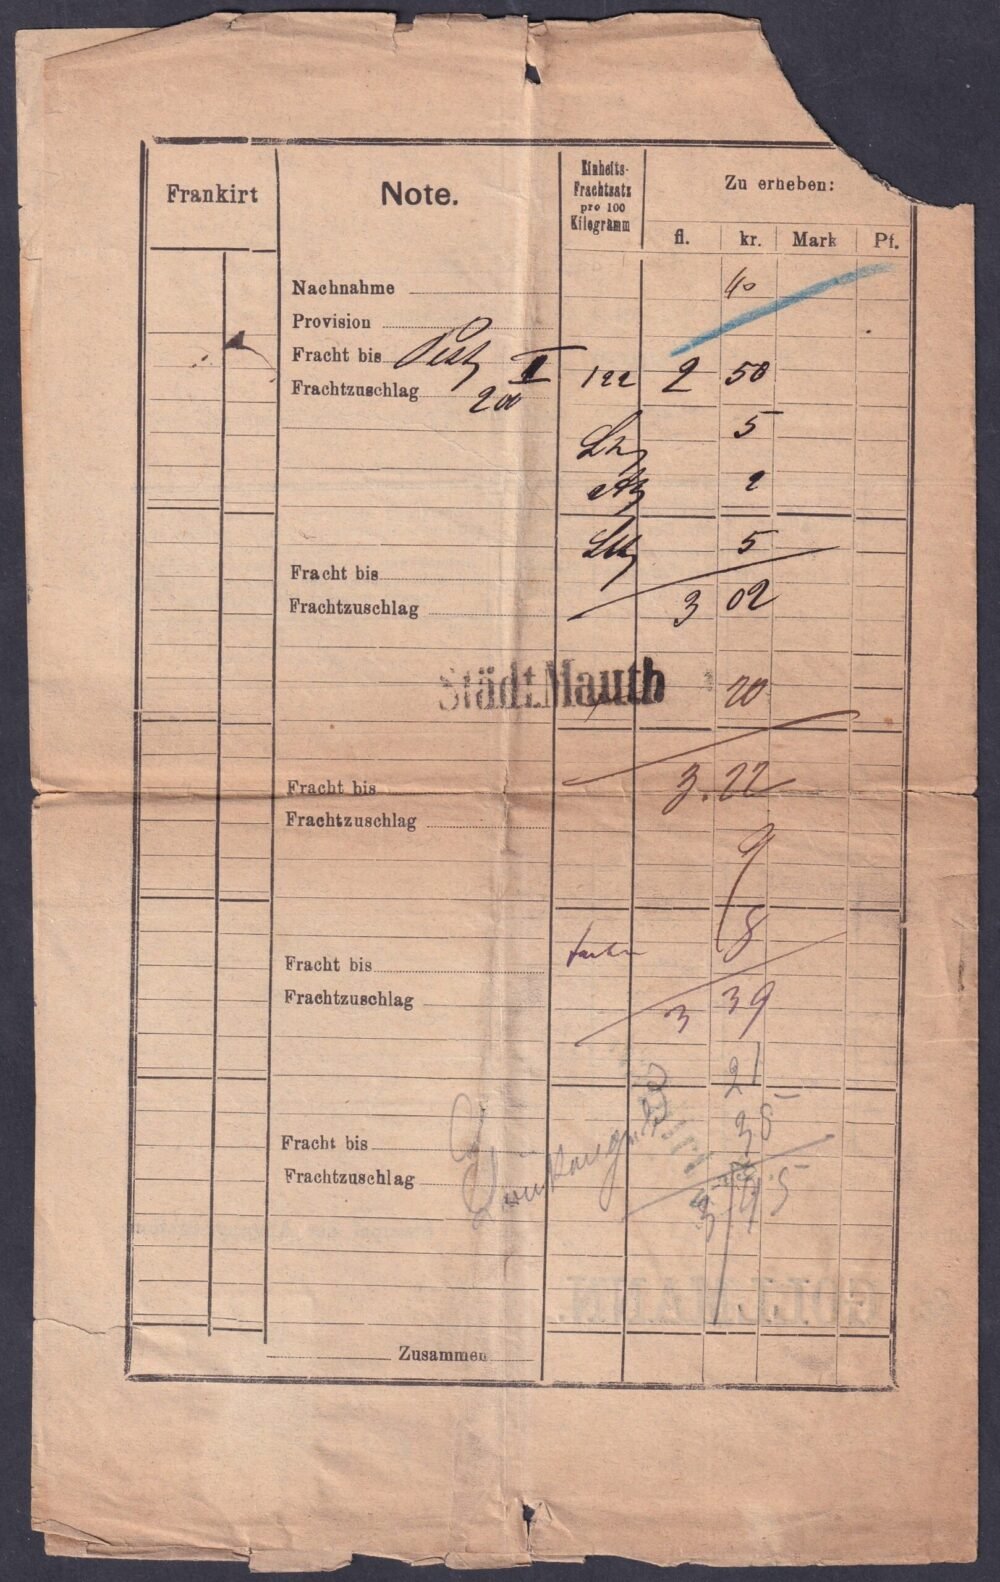 Frankirt
Note.
Einheits-
Frachtsatz
pro 100
Kilogramm
Zu erheben:
fl. kr. Mark Pf.
Nachnahme 40
Provision
Fracht bis Pest I 122 2 50
Frachtzuschlag 200
5
2
5
Fracht bis
Frachtzuschlag 3 02
Städt. Mauth 20
3.22
Fracht bis
Frachtzuschlag
9
8
Fracht bis
Frachtzuschlag 3 39
21
35
Fracht bis
Frachtzuschlag
GOLLMANN
Zusammen